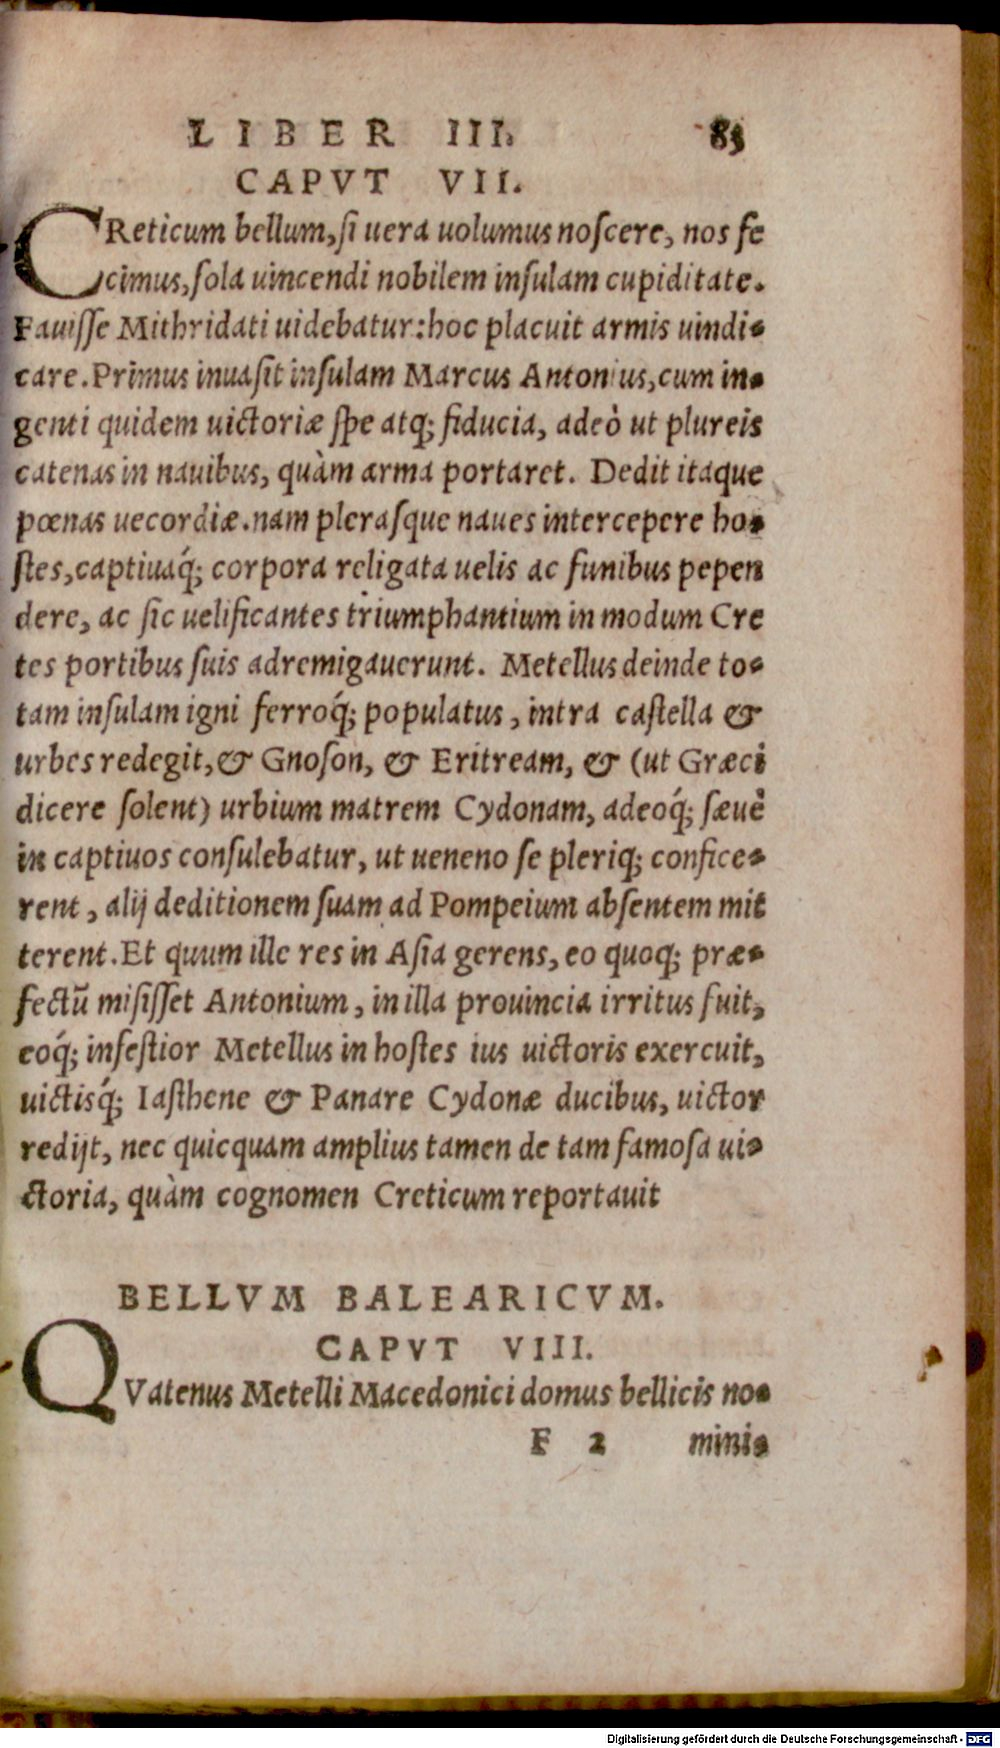 LIBER III. 83
CAPVT VII.
CReticum bellum,ſi uera uolumus noſcere, nos fe
cimus,ſola uincendi nobilem inſulam cupiditate.
Fauiſſe Mithridati uidebatur:hoc placuit armis uindi-
care.Primus inuaſit inſulam Marcus Antonius,cum in-
genti quidem uictoriæ ſpe atq; fiducia, adeò ut plureis
catenas in nauibus, quàm arma portaret. Dedit itaque
pœnas uecordiæ.nam pleraſque naues intercepere ho-
ſtes,captiuaq́; corpora religata uelis ac funibus pepen
dere, ac ſic uelificantes triumphantium in modum Cre
tes portibus ſuis adremigauerunt. Metellus deinde to-
tam inſulam igni ferroq́; populatus, intra caſtella &
urbes redegit,& Gnoſon, & Eritream, & (ut Græci
dicere ſolent) urbium matrem Cydonam, adeoq́; ſæuè
in captiuos conſulebatur, ut ueneno ſe pleriq; confice-
rent, alij deditionem ſuam ad Pompeium abſentem mit
terent.Et quum ille res in Aſia gerens, eo quoq; præ-
fectũ miſiſſet Antonium, in illa prouincia irritus fuit,
eoq́; infeſtior Metellus in hoſtes ius uictoris exercuit,
uictisq́; Iaſthene & Panare Cydonæ ducibus, uictor
redijt, nec quicquam amplius tamen de tam famoſa ui-
ctoria, quàm cognomen Creticum reportauit
BELLVM BALEARICVM.
CAPVT VIII.
QVatenus Metelli Macedonici domus bellicis no-
F 2 mini-
Digitalisierung gefördert durch die Deutsche Forschungsgemeinschaft - DFG